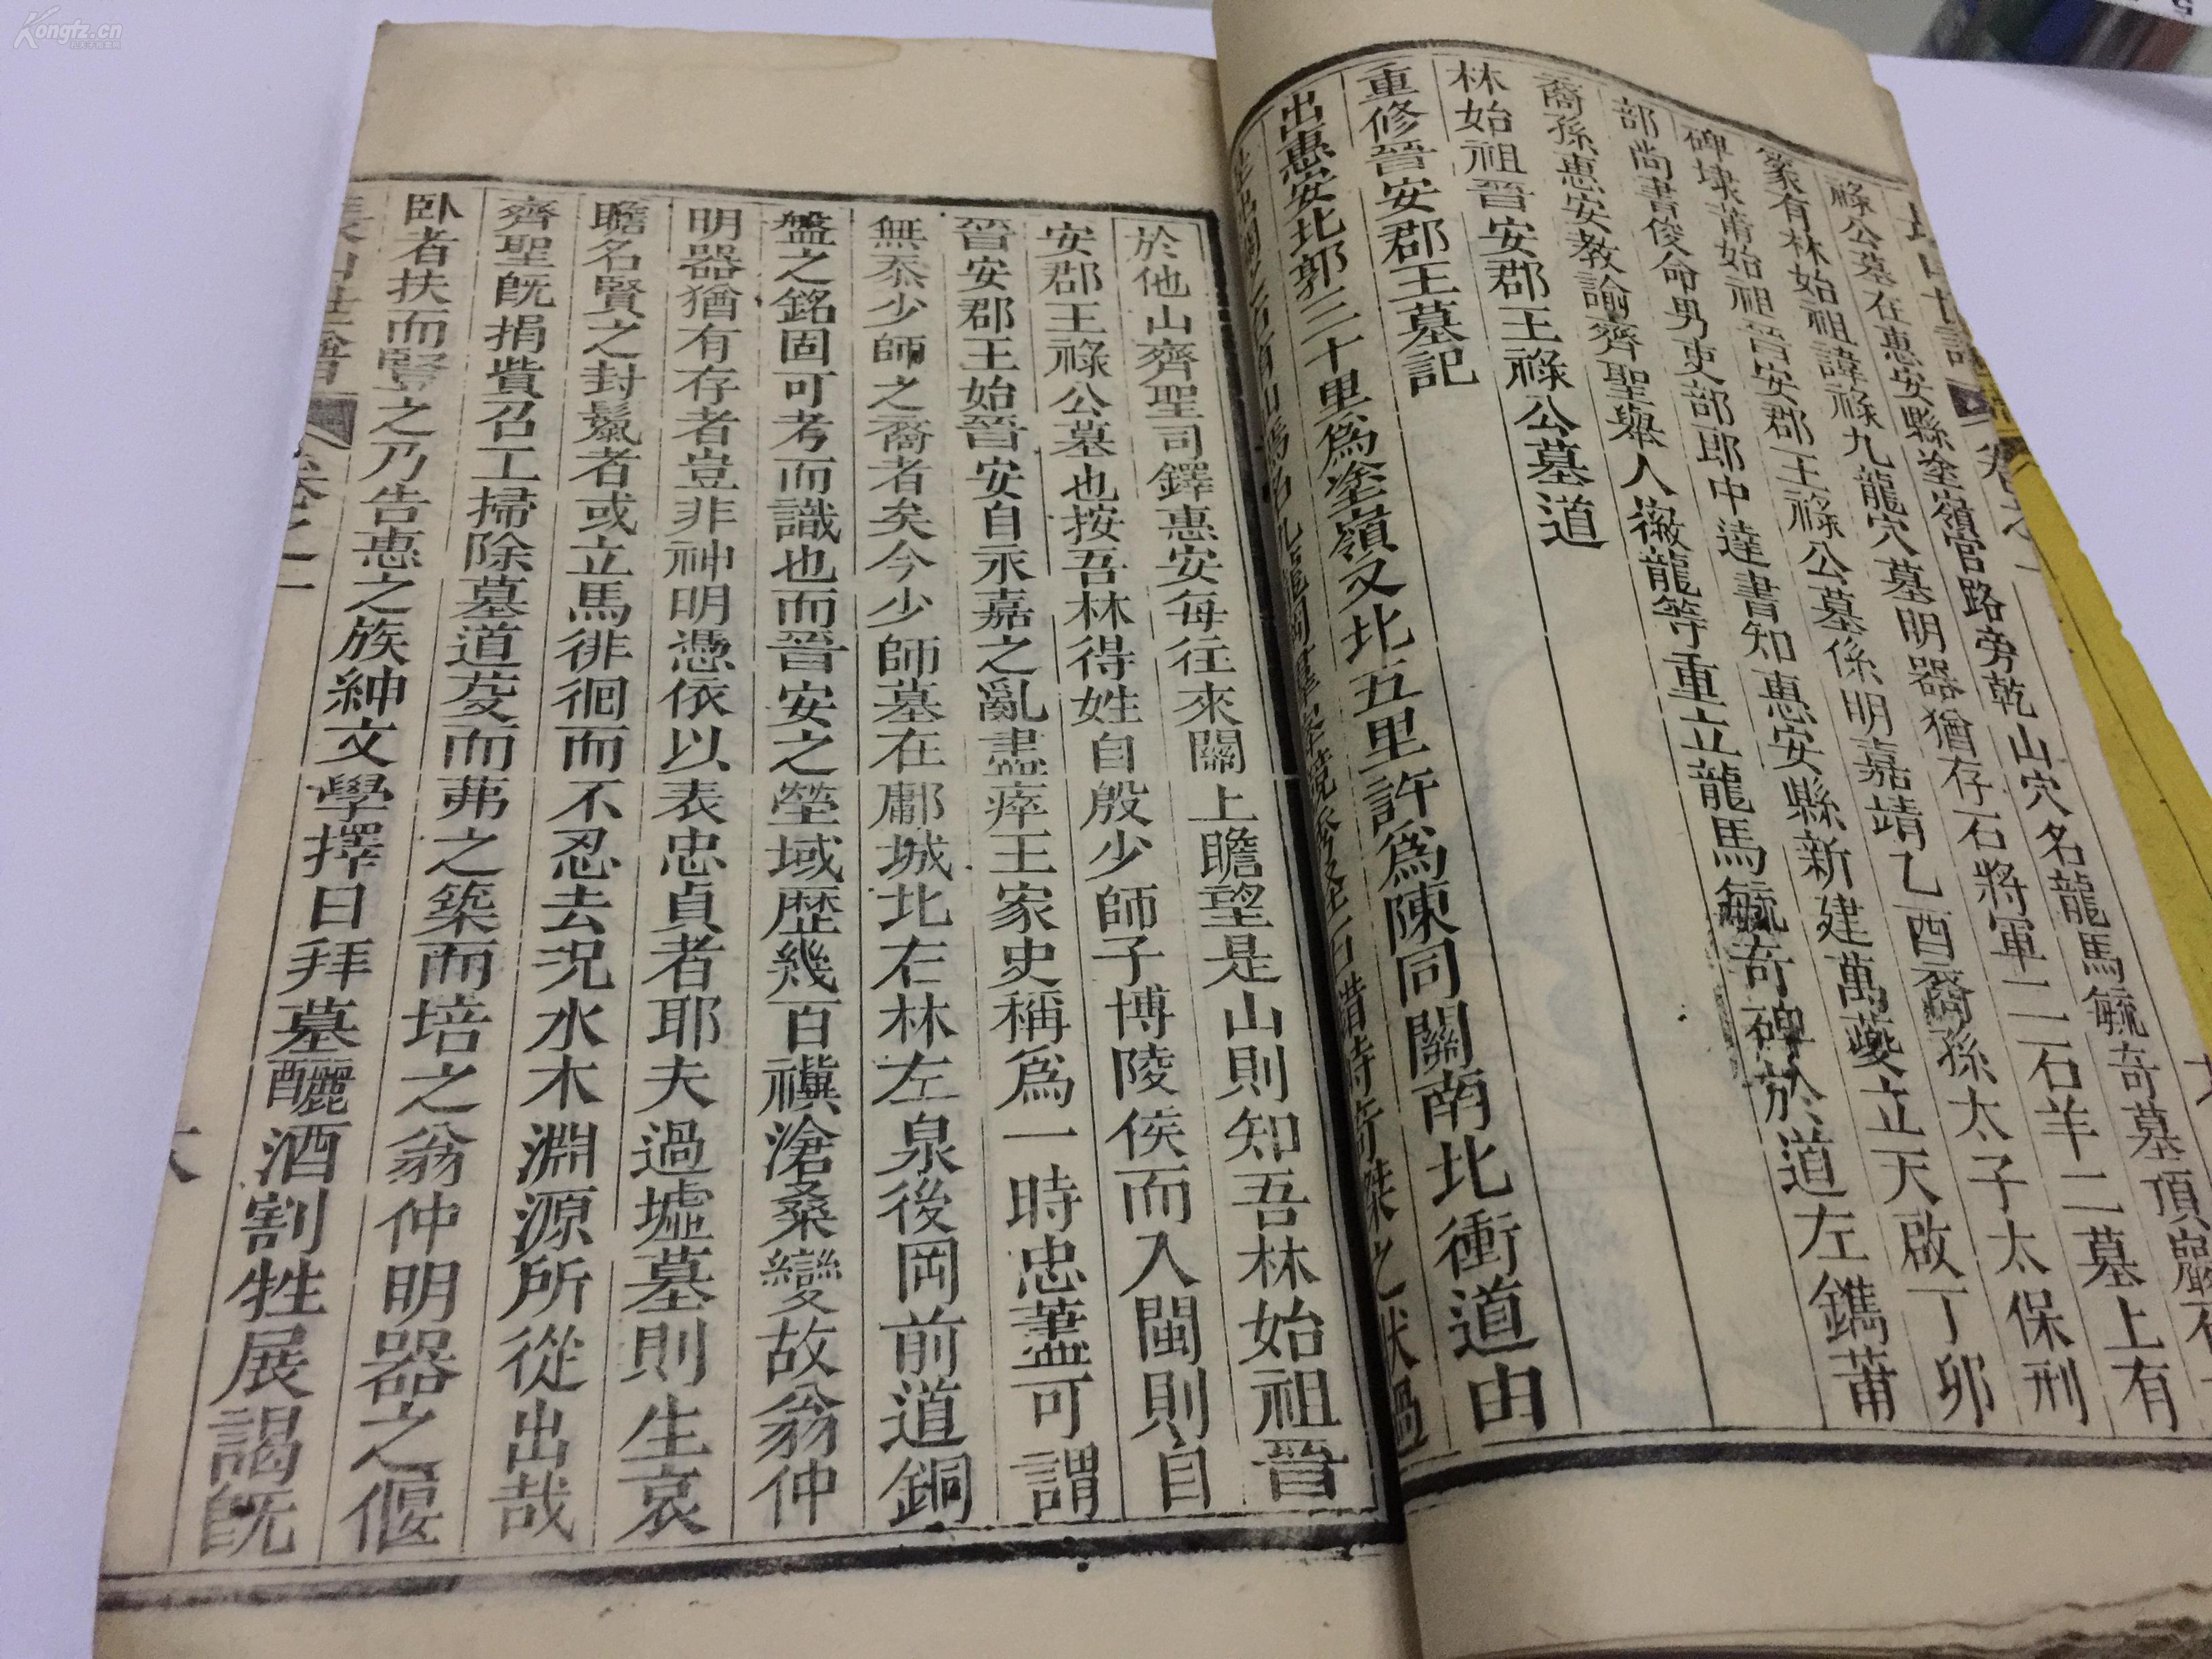 祿公墓在惠安縣塗嶺官路旁乾山穴名龍馬毓奇墓頂巖石
林始祖諱祿九龍穴墓明器猶存石將軍二石羊二墓上有
冢有林始祖晉安郡王祿公墓係明嘉靖乙酉裔孫太子太保刑
碑埭莆始祖晉安郡王祿公墓
部尚書俊命男吏部郎中達書知惠安縣新建萬夔立天啟丁卯
裔孫惠安教諭齊聖舉人徽龍等重立龍馬毓奇碑於道左鐫莆
林始祖晉安郡王祿公墓道
重修晉安郡王墓記
出惠安北郭三十里爲塗嶺又北五里許爲陳同關南北衝道由
於他山齊聖司鐸惠安每往來關上瞻望是山則知吾林始祖晉
安郡王祿公墓也按吾林得姓自殷少師子博陵侯而入閩則自
晉安郡王始晉安自永嘉之亂盡瘁王家史稱爲一時忠藎可謂
無忝少師之裔者矣今少師墓在鄘城北右林左泉後岡前道銅
盤之銘固可考而識也而晉安之塋域歷幾百禩滄桑變故翁仲
明器猶有存者豈非神明憑依以表忠貞者耶夫過墟墓則生哀
瞻名賢之封鬛者或立馬徘徊而不忍去況水木淵源所從出哉
齊聖旣捐貲召工掃除墓道茇而茀之築而培之翁仲明器之偃
臥者扶而豎之乃告惠之族紳文學擇日拜墓釃酒割牲展謁旣
卷之一
六
Kongfz.cn